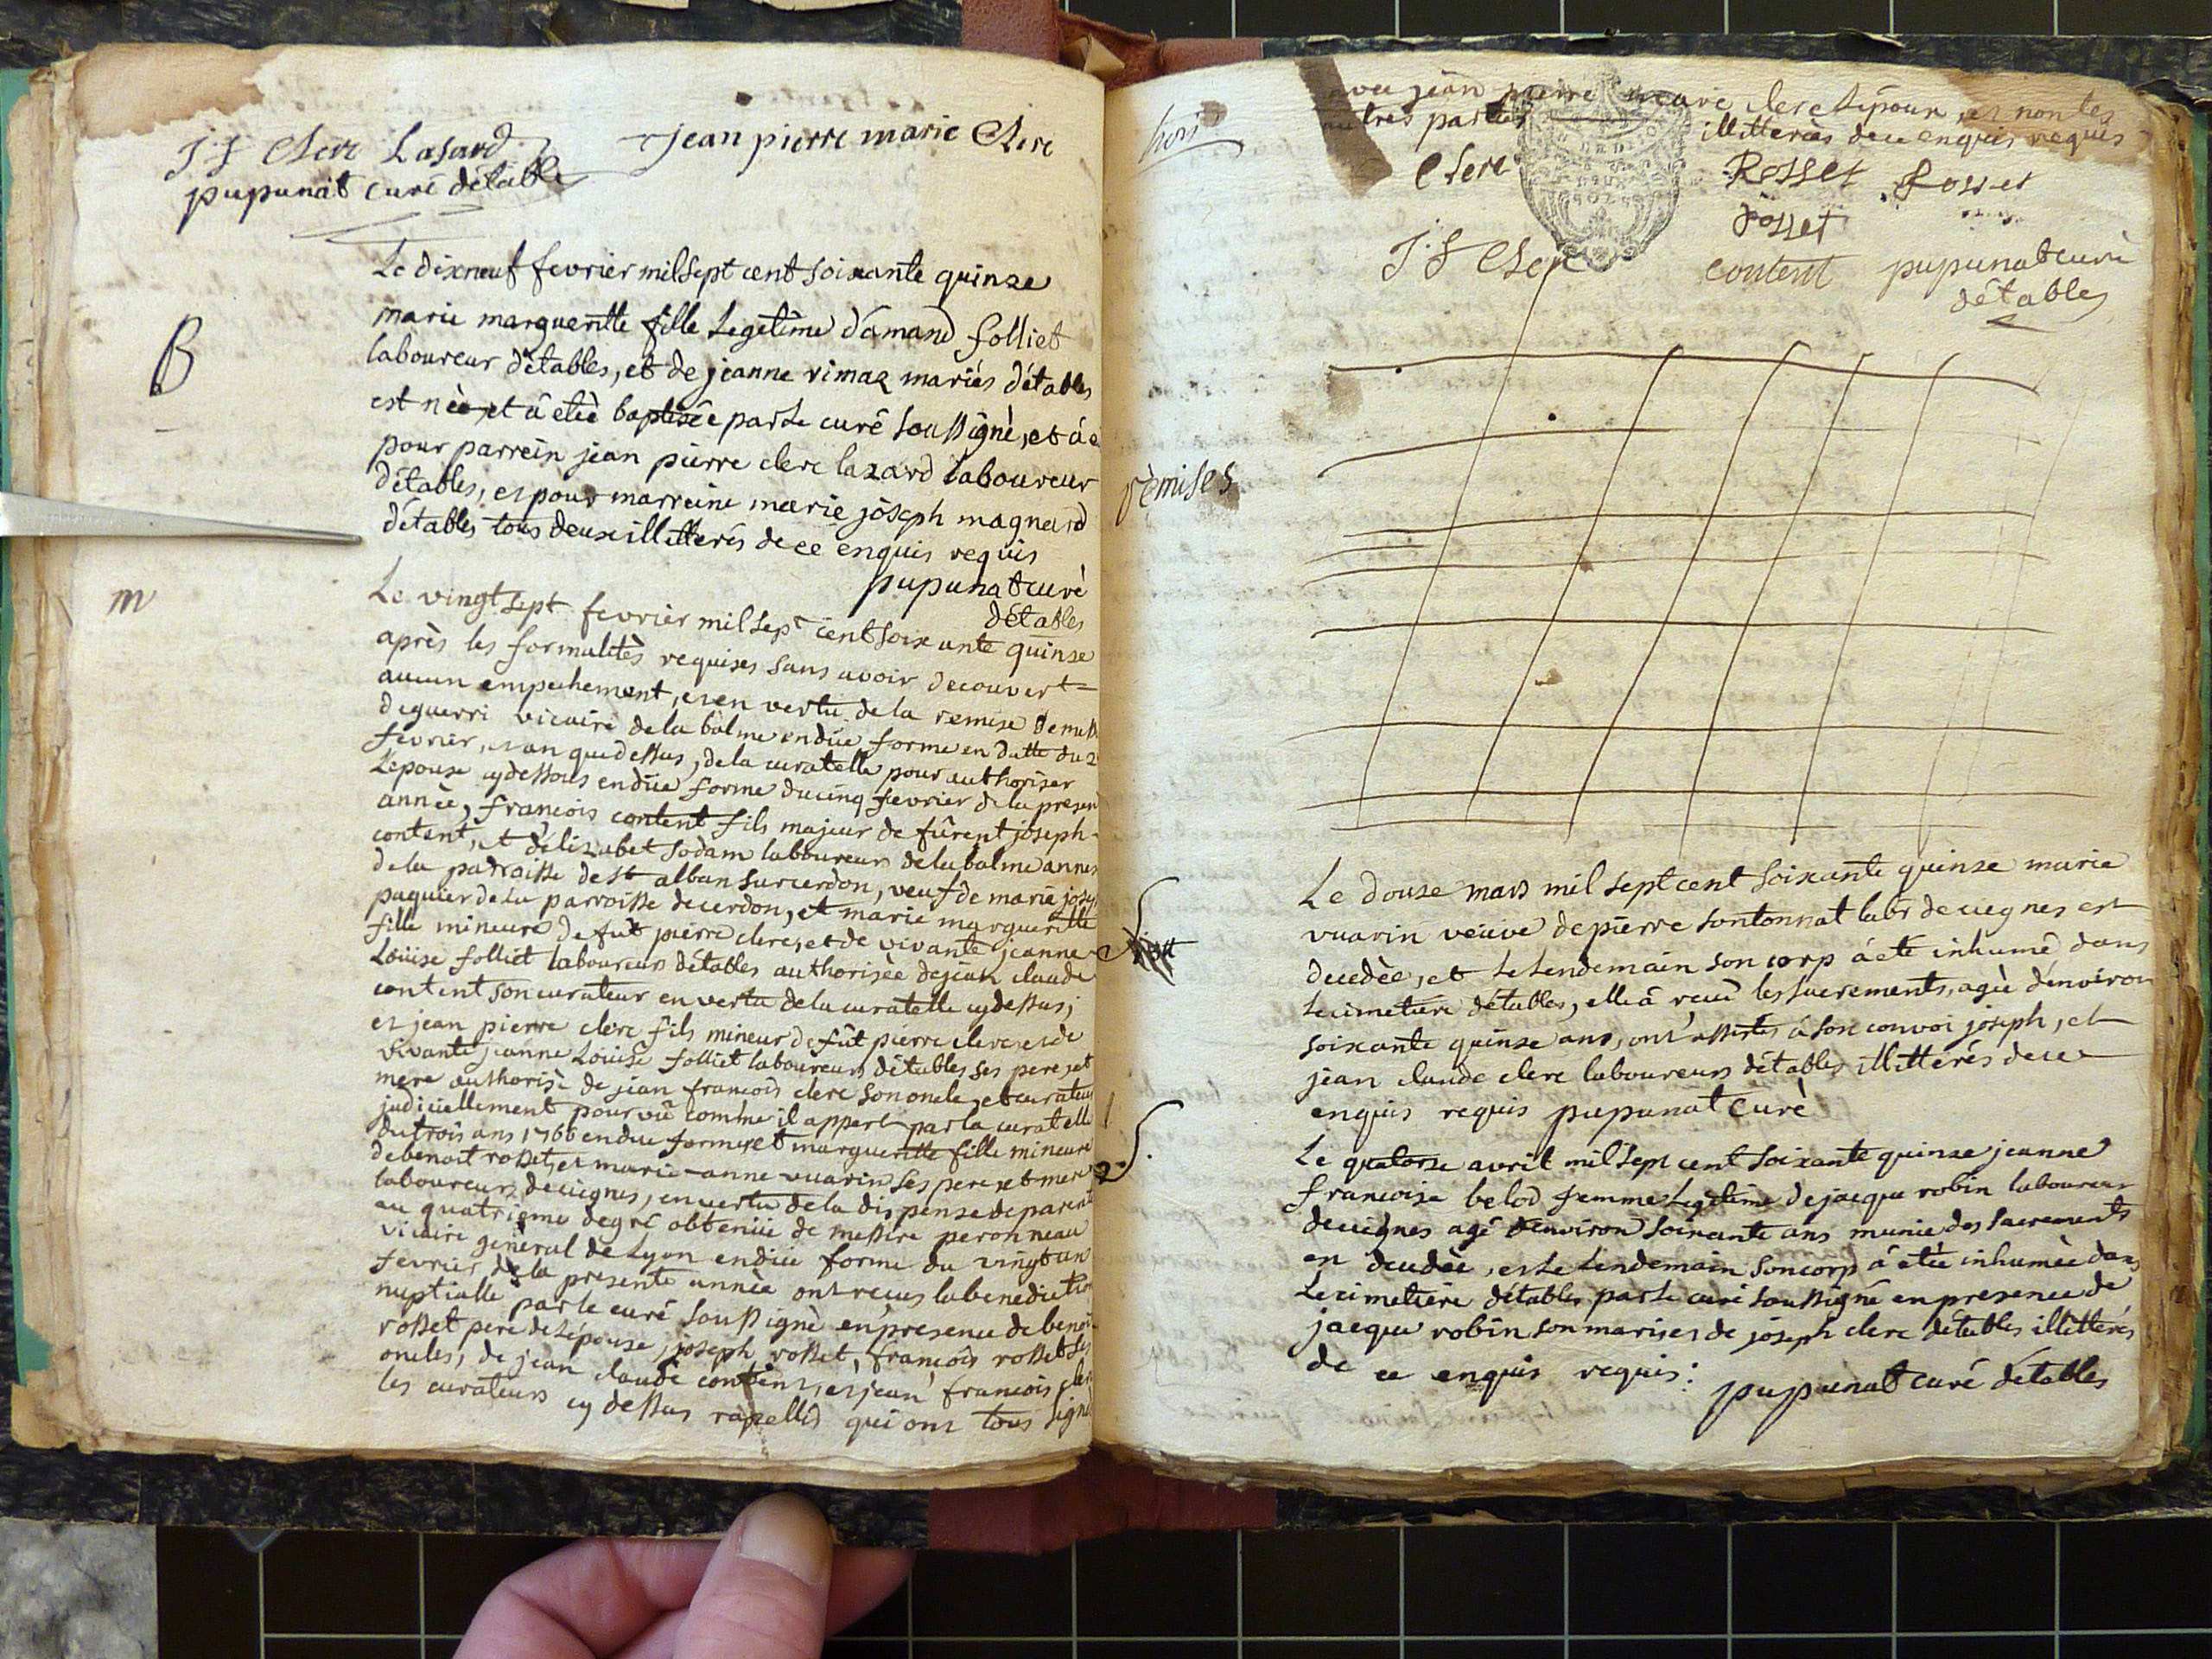 J: f Clerc Lasard
Jean pierre marie Clerc
pupunat curé détables
B
Le dixneuf fevrier mil sept cent soixante quinze
marie margueritte fille Legetime d'amand folliet
laboureur détables, et de jeanne rimaz mariés détables
est nèe, et â etèe baptisèe par Le curé soussignè, et â e
pour parrein jean pierre clerc lazard laboureur
détables, et pour marreine marie jôseph magnard
détables tous deux illitterés de ce enquis requis
pupunat curè
détables
m
Le vingt sept fevrier mil sept cent soixante quinze
après les formalitès requises sans avoir decouvert
aucun empechement, et en vertu de la remise de mess
deguerri vicaire de la balme en düe forme en datte du 2
fevrier, et an que dessus, de la curatelle pour authoriser
L'epouse cy dessous en düe forme du cinq fevrier de la presen
annèe, francois content fils majeur de fûrent jôseph
content, et d'elizabet sodam laboureurs de la balme annex
de la parroisse de st alban sur cerdon, veuf de marie josep
paquier de la parroisse de cerdon, et marie marguerite
fille mineure de fût pierre clerc, et de vivante jeanne
Loüise folliet laboureurs détables authorisèe de jean claude
content son curateur en vertu de la curatelle cy dessus;
et jean pierre clerc fils mineur de fût pierre clerc et de
vivante jeanne Loüise folliet laboureurs détables ses pere, et
mere authorisè de jean francois clerc son oncle, et curateur
judiciellement pourvû comme il appert par la curatelle
du trois ans 1766 en due forme, et marguerite fille mineure
de benoit rosset, et marie-anne vuarin ses pere, et mere
laboureurs de ceignes, en vertu de la dispense de parenté
au quatrieme degré obtenüe de messire peronneau
vicaire gènèral de Lyon en düe forme du vingt un
fevrier de la presente annèe ont recus la benediction
nuptialle par le curé soussignè en presence de benoi
rosset pere de L'épouse, joseph rosset, francois rosset ses
oncles, de jean claude content, et jean francois clerc
les curateurs cy dessus rapellés qui ont tous signé
hors
avec jean pierre marie clerc L'époux, et non les
autres parties illitterées de ce enquis requis
Clerc Rosset Rosset
rosset
J: f Clerc content pupunat curè
détables
remises
Le douze mars mil sept cent soixante quinze marie
vuarin veuve de pierre sontonnat labr de ceignes est
decedèe, et Le Lendemain son corp â eté inhumé dans
Le cimetiere détables, elle â recû les sacrements, agèe d'environ
soixante quinze ans, ont assistés â son convoi jôseph, et
jean claude clerc laboureurs détables illittérés de ce
enquis requis pupunat curè
S.
Le quatorze avril mil sept cent soixante quinze jeanne
francoise belod femme Legitime de jacque robin laboureur
de ceignes agé d'environ soixante ans munie des sacrements
en decedèe, et Le Lendemain son corp â etèe inhumèe dans
Le cimetiere détables par Le curé soussigné en presence de
jacque robin son mari, et de jôseph clerc détables illittérés
de ce enquis requis: pupunat curé détables